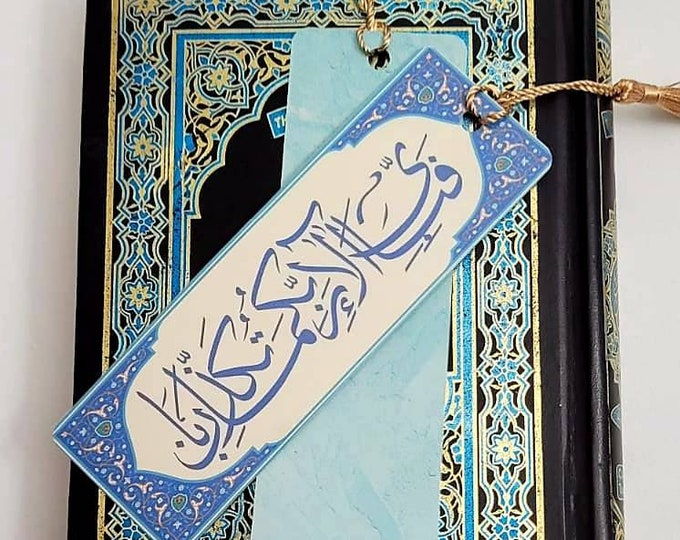 فبأي آلاء ربكما تكذبان
TH